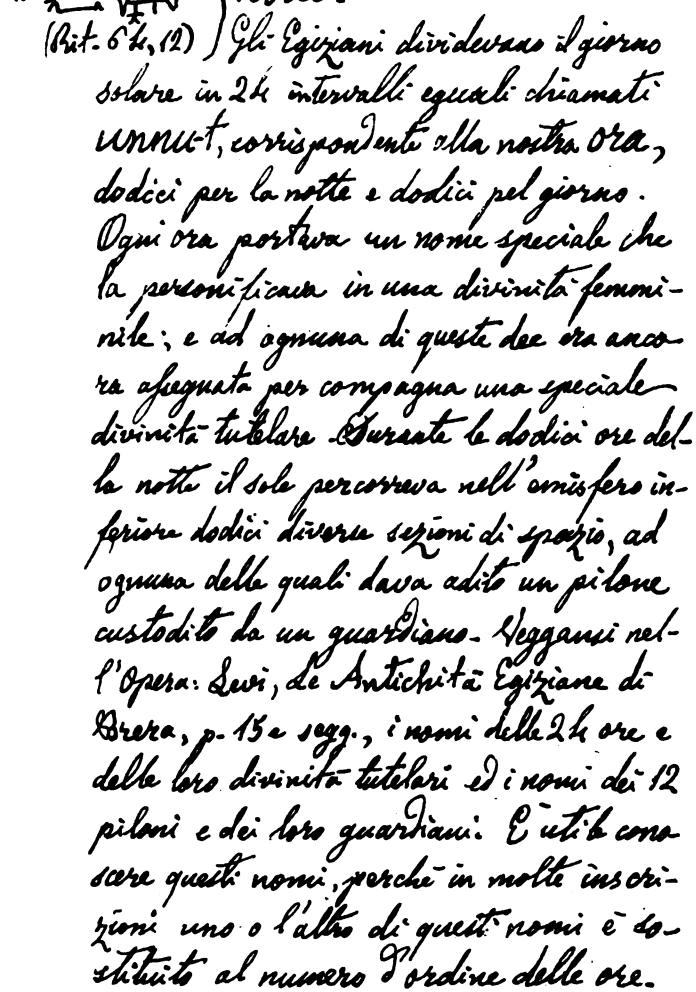 (Rit. 64,12) Gli Egiziani dividevano il giorno
solare in 24 intervalli eguali chiamati
unnu-t, corrispondente alla nostra ora,
dodici per la notte e dodici pel giorno.
Ogni ora portava un nome speciale che
la personificava in una divinità femmi-
nile; e ad ognuna di queste dee era anco-
ra assegnata per compagna una speciale
divinità tutelare. Durante le dodici ore del-
la notte il sole percorreva nell'emisfero in-
feriore dodici diverse sezioni di spazio, ad
ognuna delle quali dava adito un pilone
custodito da un guardiano. Veggansi nel-
l'Opera: Levi, Le Antichità Egiziane di
Brera, p. 15 e segg., i nomi delle 24 ore e
delle loro divinità tutelari ed i nomi dei 12
piloni e dei loro guardiani. È utile cono
scere questi nomi, perchè in molte inscri-
zioni uno o l'altro di questi nomi è so-
stituito al numero d'ordine delle ore.